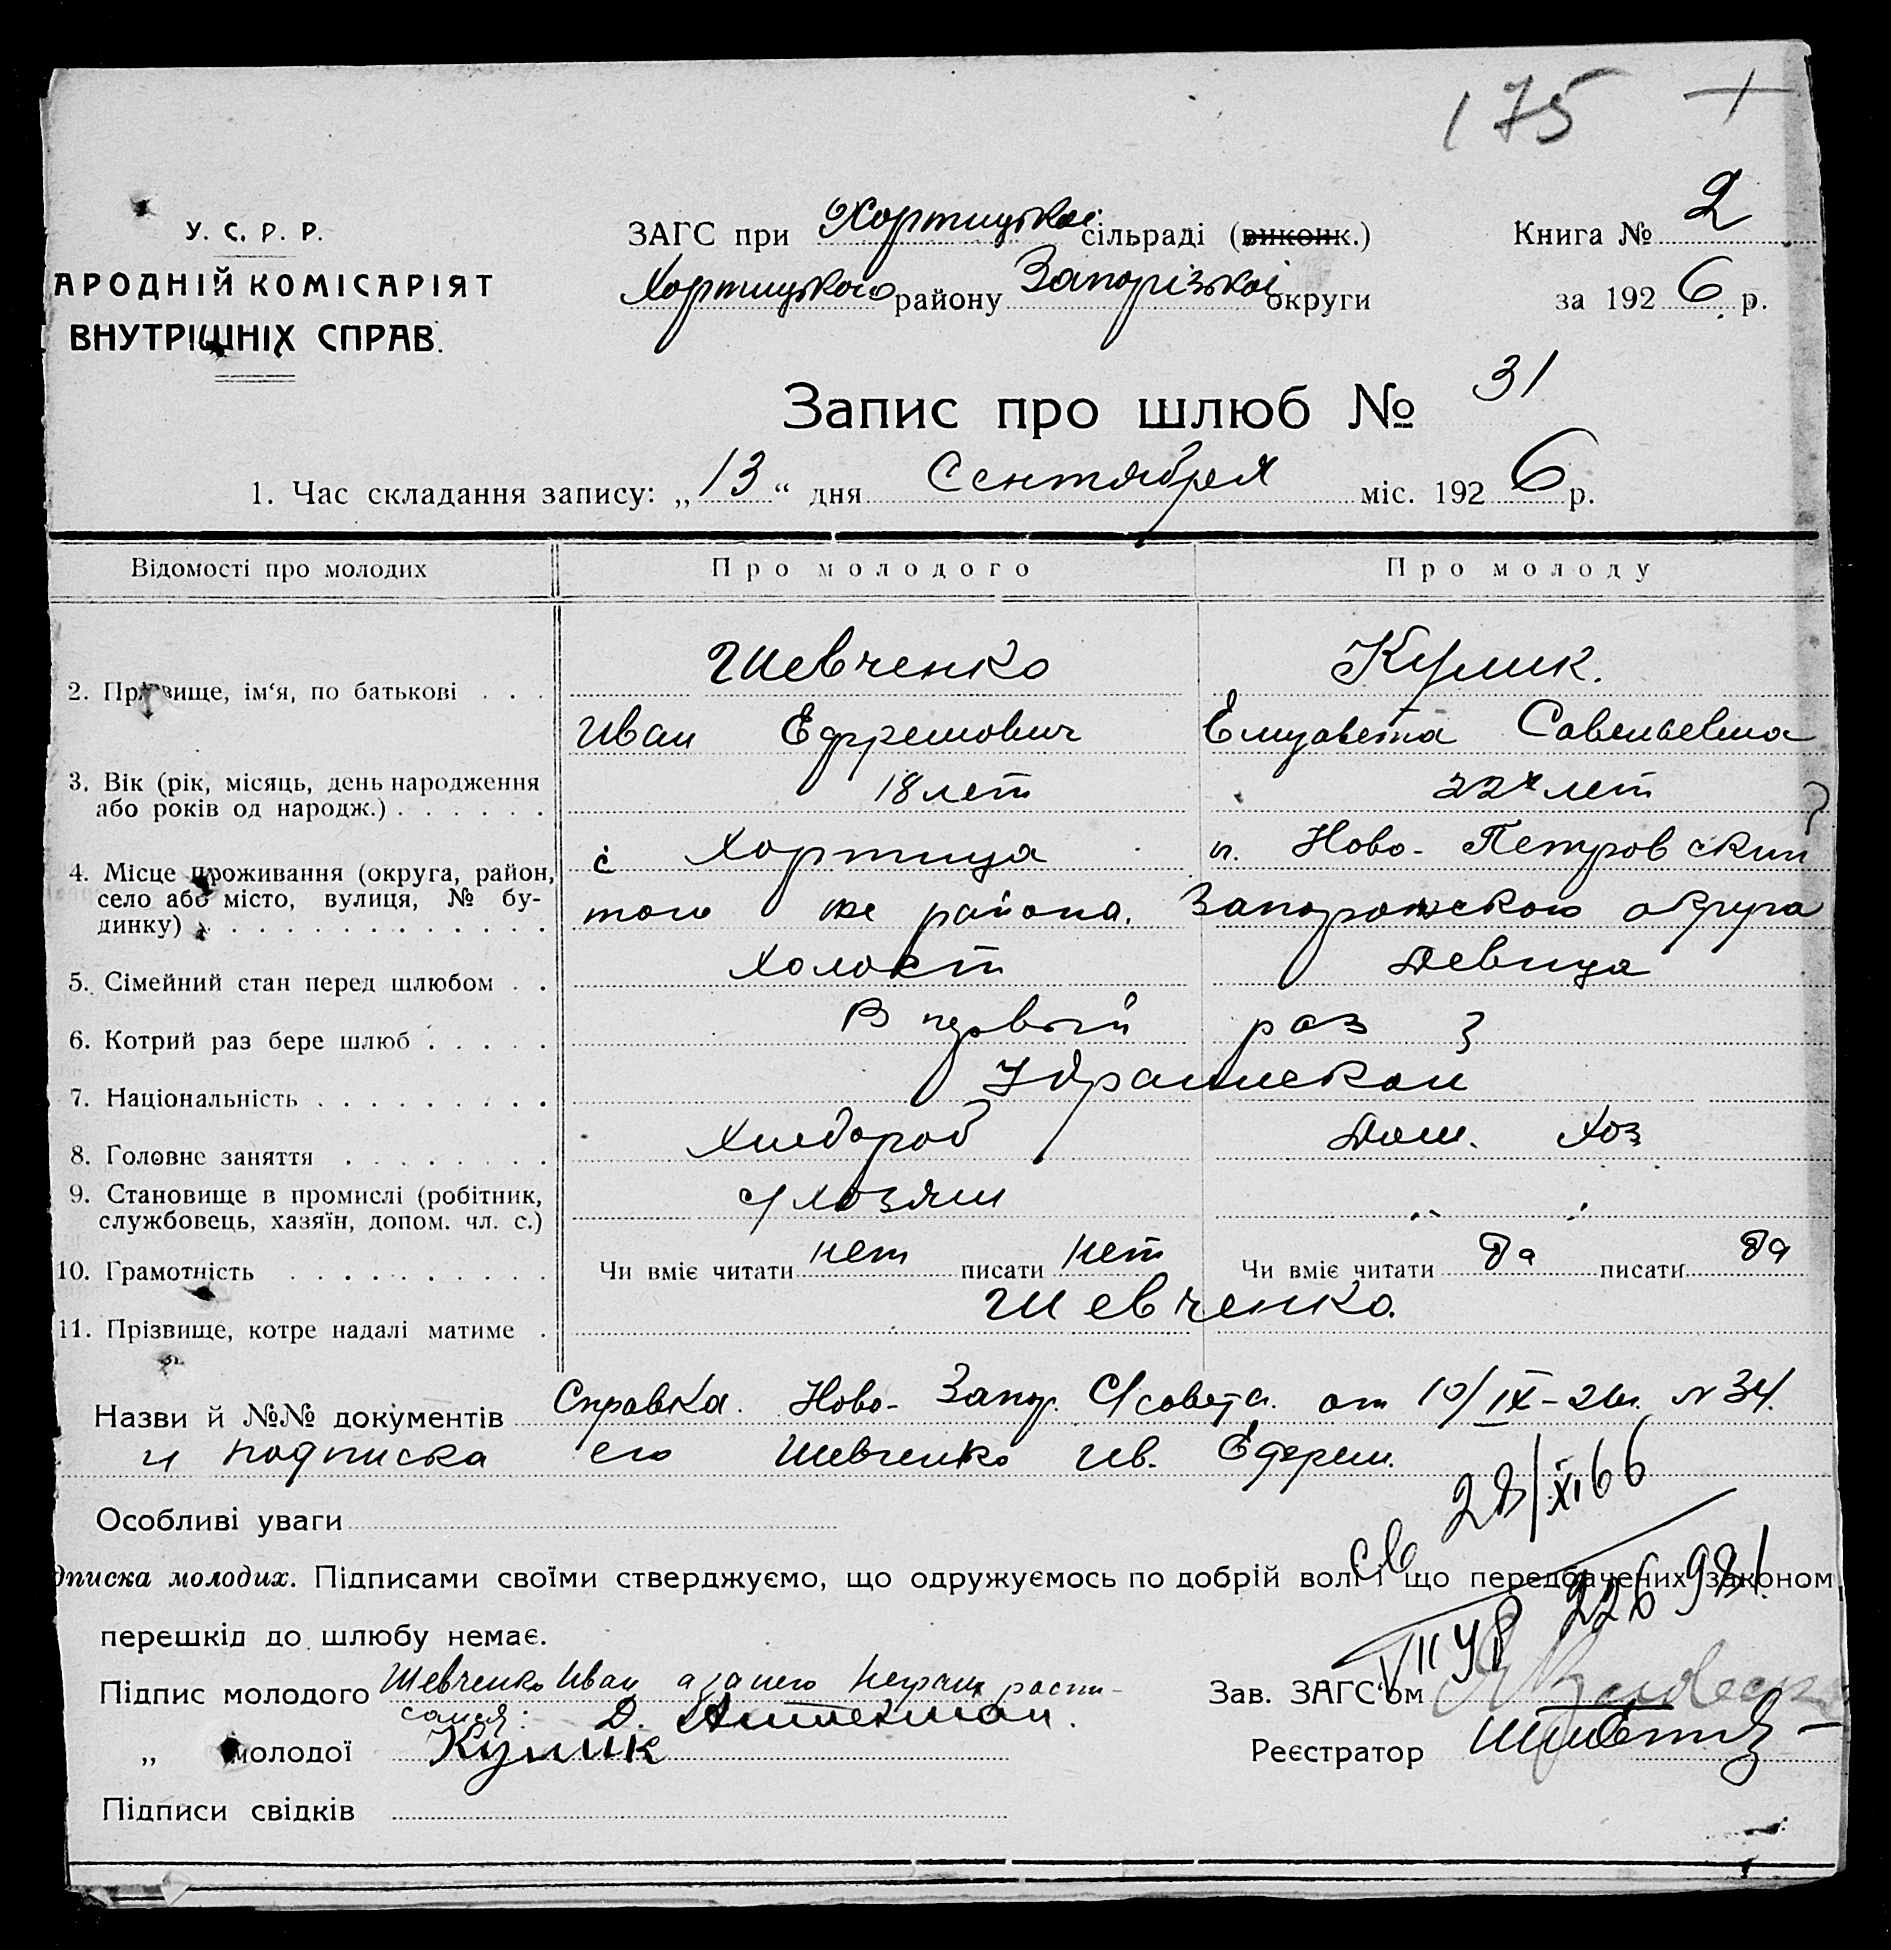 175 +
У. С. Р. Р.
АРОДНІЙ КОМІСАРІЯТ
ВНУТРІШНІХ СПРАВ.
ЗАГС при Хортицькоі сільраді (виконк.) Книга № 2
Хортицького району Запорізькоі округи за 1926 р.
Запис про шлюб № 31
1. Час складання запису: „13“ дня Сентября міс. 1926 р.
Відомості про молодих Про молодого Про молоду
2. Прізвище, ім‘я, по батькові . . . Шевченко Кулик.
Иван Ефремович Елизавета Савельевна
3. Вік (рік, місяць, день народження
або років од народж.) . . . . . . 18 лет 22х лет
4. Місце проживання (округа, район, с Хортица п. Ново-Петровский
село або місто, вулиця, № бу-
динку) . . . . . . . . . . . . . того же района. Запорожского округа
5. Сімейний стан перед шлюбом . . Холост Девица
6. Котрий раз бере шлюб . . . . . В первый раз
7. Національність . . . . . . . . . Украинской
8. Головне заняття . . . . . . . . Хлебороб Дом. хоз
9. Становище в промислі (робітник,
службовець, хазяїн, допом. чл. с.) хозяин „ „
10. Грамотність . . . . . . . . . . Чи вміє читати нет писати нет Чи вміє читати да писати да
11. Прізвище, котре надалі матиме . Шевченко
Назви й №№ документів Справка Ново-Запор. С/совета от 10/IX-26г. № 34.
и подписка его Шевченко Ив. Ефрем.
28/XI 66
Особливі уваги
св
дписка молодих. Підписами своїми стверджуємо, що одружуємось по добрій волі і що передбачених законом
перешкід до шлюбу немає.
VII УР 226981
Підпис молодого Шевченко Иван а за него неграм распи-
сался: Д.
Зав. ЗАГС‘ом
„ молодої Кулик Реєстратор
Підписи свідків